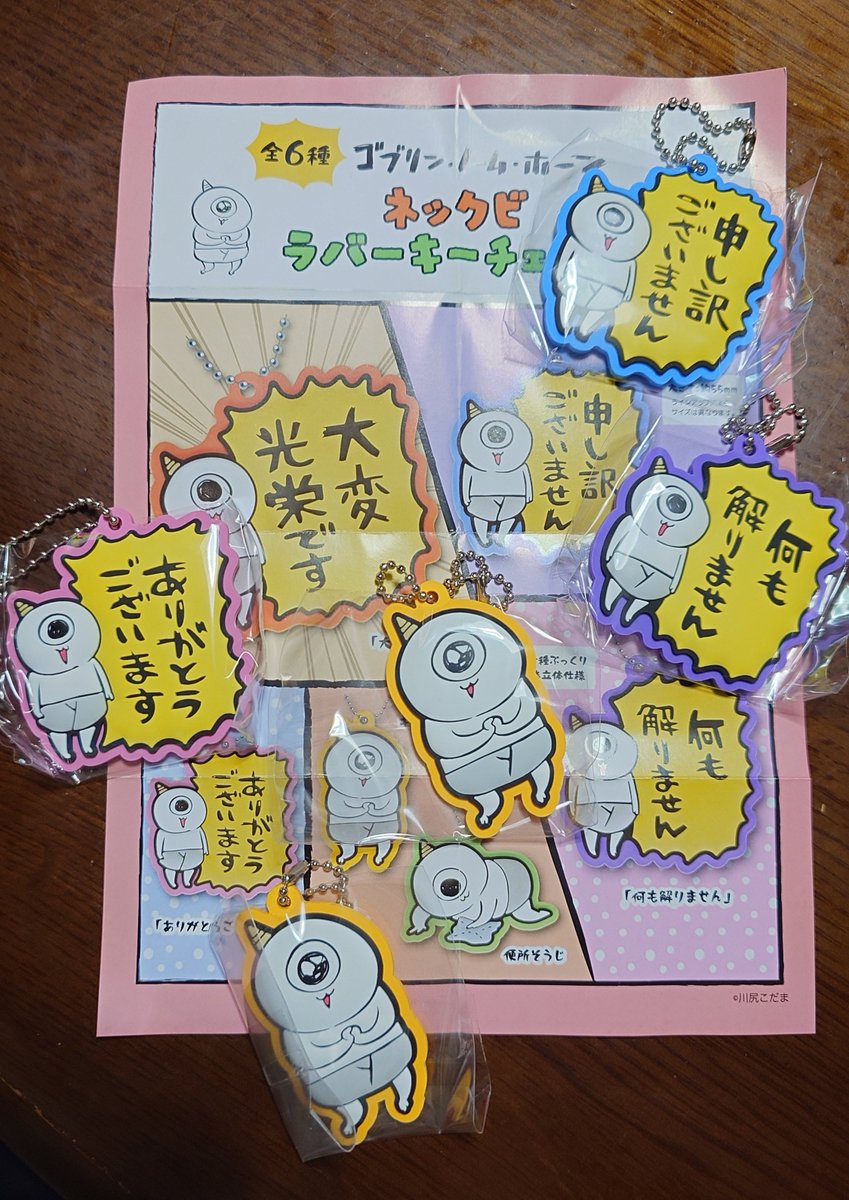 全6種
ゴブリン・ノーム・ホーン
ネックビ
ラバーキーチェ
申し訳
ございません
約55mm
サイズは異なります。
大変
光栄です
申し訳
ございません
何も
解りません
ありがとう
ございます
「大
種ぶっくり
立体仕様
何も
解りません
ありがとう
ございます
「ありがとうご
便所そうじ
「何も解りません」
©川尻こだま